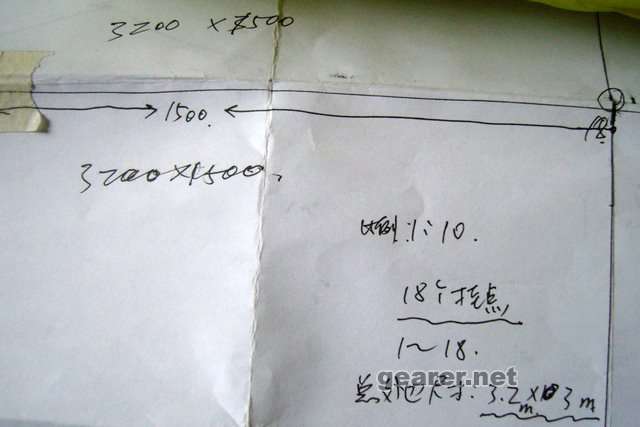 3200 × 1500
1500.
18
3200×1500.
比例:1:10.
18个挂点
1~18.
gearer.net
总对地尺寸. 3.2m×3m